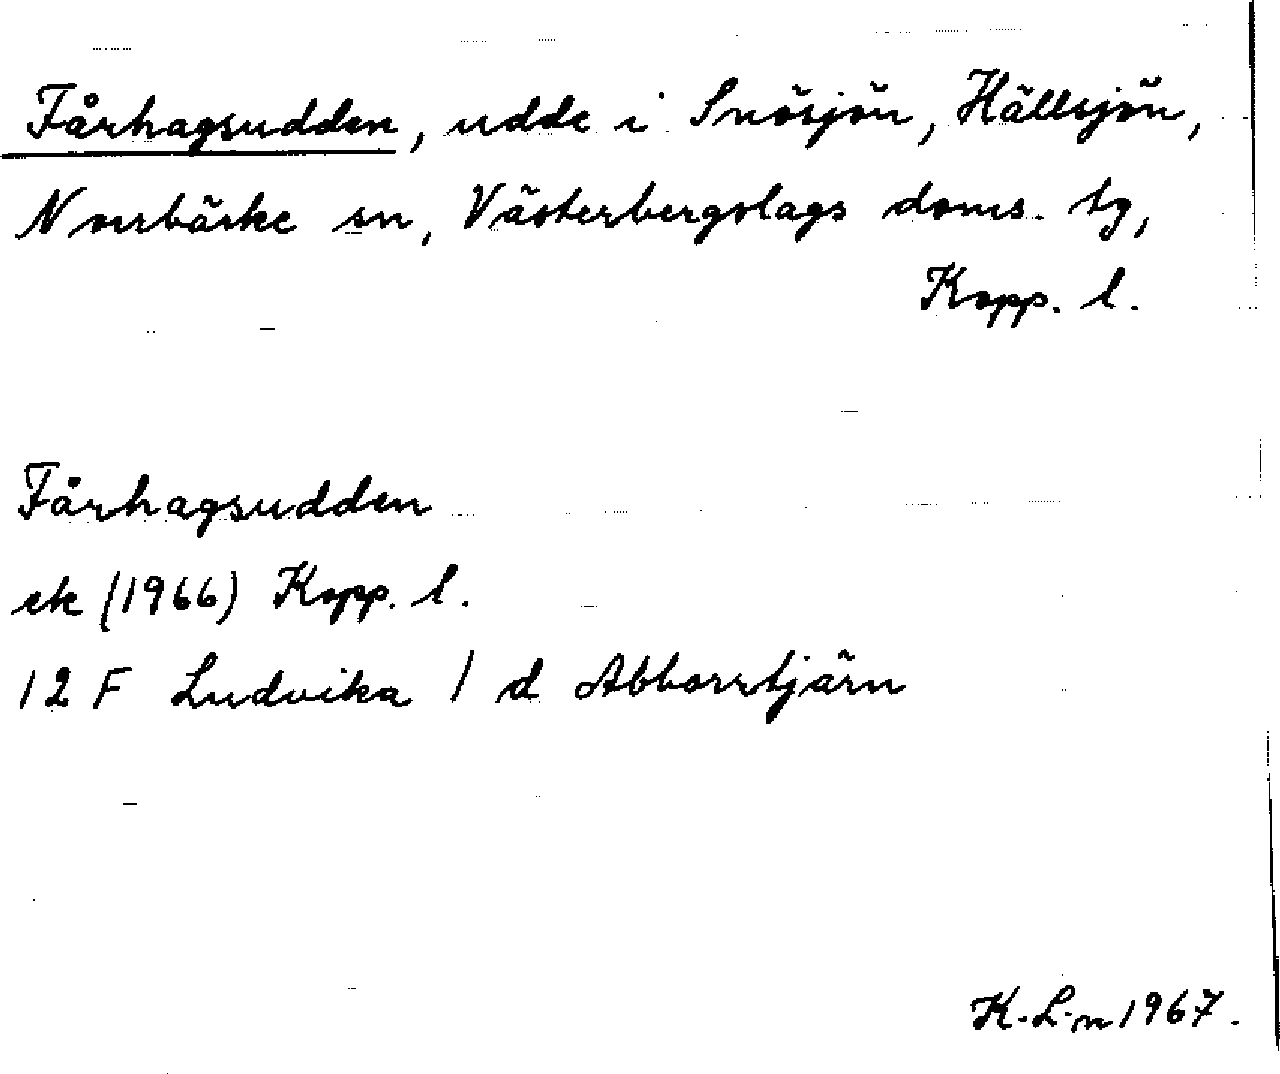 Fårhagsudden, udde i Snösjön, Hällsjön,
Norrbärke sn, Västerbergslags doms. tg,
Kopp. l.
Fårhagsudden
ek (1966) Kopp. l.
12 F Ludvika 1 d Abborrtjärn
K. L-n 1967.